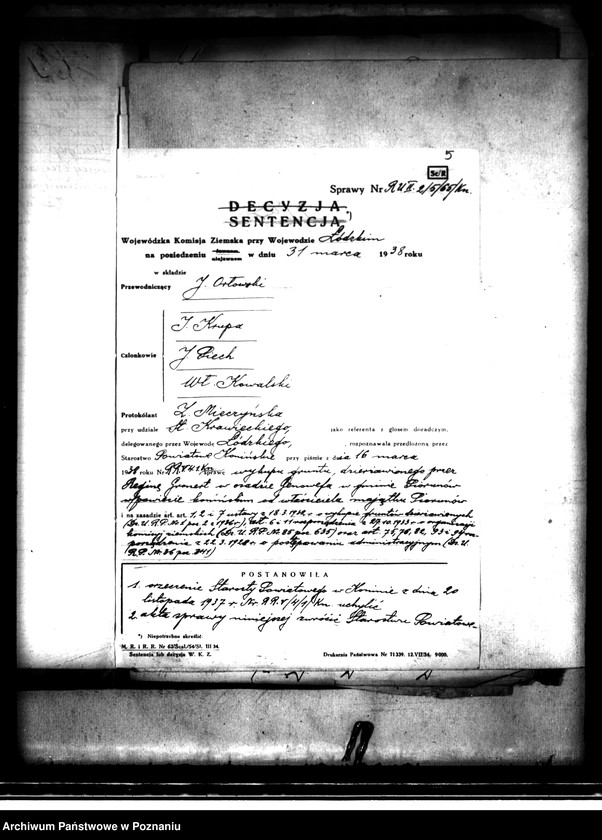 5
Sc/R
Sprawy Nr R.U.II. 2/5/65/Kn.
DECYZJA
SENTENCJA *)
Wojewódzka Komisja Ziemska przy Wojewodzie Łódzkim
na posiedzeniu jawnem niejawnem w dniu 31 marca 1938 roku
w składzie
Przewodniczący J. Orłowski
J. Krupa
Członkowie J. Piech
Wł. Kowalski
Protokólant Z. Mieczyńska
przy udziale St. Krawieckiego, jako referenta z głosem doradczym,
delegowanego przez Wojewodę Łódzkiego, rozpoznawała przedłożoną przez
Starostwo Powiatowe Konińskie przy piśmie z dnia 16 marca
1938 roku Nr sprawę wykupu gruntu, dzierżawionego przez
Reginę w osadzie Genowefa w gminie Piorunów
w powiecie konińskim od właściciela majątku Piorunów
i na zasadzie art. art. 1, 2 i 7 ustawy z 18.3.1932 r. o wykupie gruntów
(Dz. U. R.P. Nr poz. art. 6 i 11 rozporządzenia z 27.10.1933 r. o organizacji
komisyj ziemskich (Dz. U. R.P. Nr 85 poz. 635) oraz art. 75, 76, 82, 93
z 22.3.1928 r. o postępowaniu administracyjnym (Dz. U.
R.P. Nr. 36 poz. 341)
POSTANOWIŁA
1. orzeczenie Starosty Powiatowego w Koninie z dnia 20
listopada 1937 r. Nr. uchylić
2. akta sprawy niniejszej zwrócić Starostwu Powiatowe
*) Niepotrzebne skreślić
M. R. i R. R. Nr 63/Scal./54/Sl. III 34.
Sentencja lub decyzja W. K. Z. Drukarnia Państwowa Nr 71339. 12.VII/34. 9000.
Archiwum Państwowe w Poznaniu